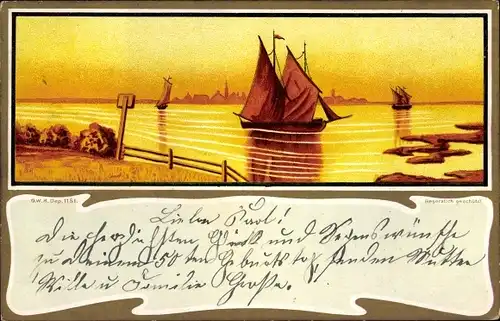 G.W.K. Dep. 1151.
Gesetzlich geschützt
Lieber Karl!
Die herzlichsten Glück und Segenswünsche
zu deinem 50 ten Geburtstag senden Mutter
Wille u Familie Große.